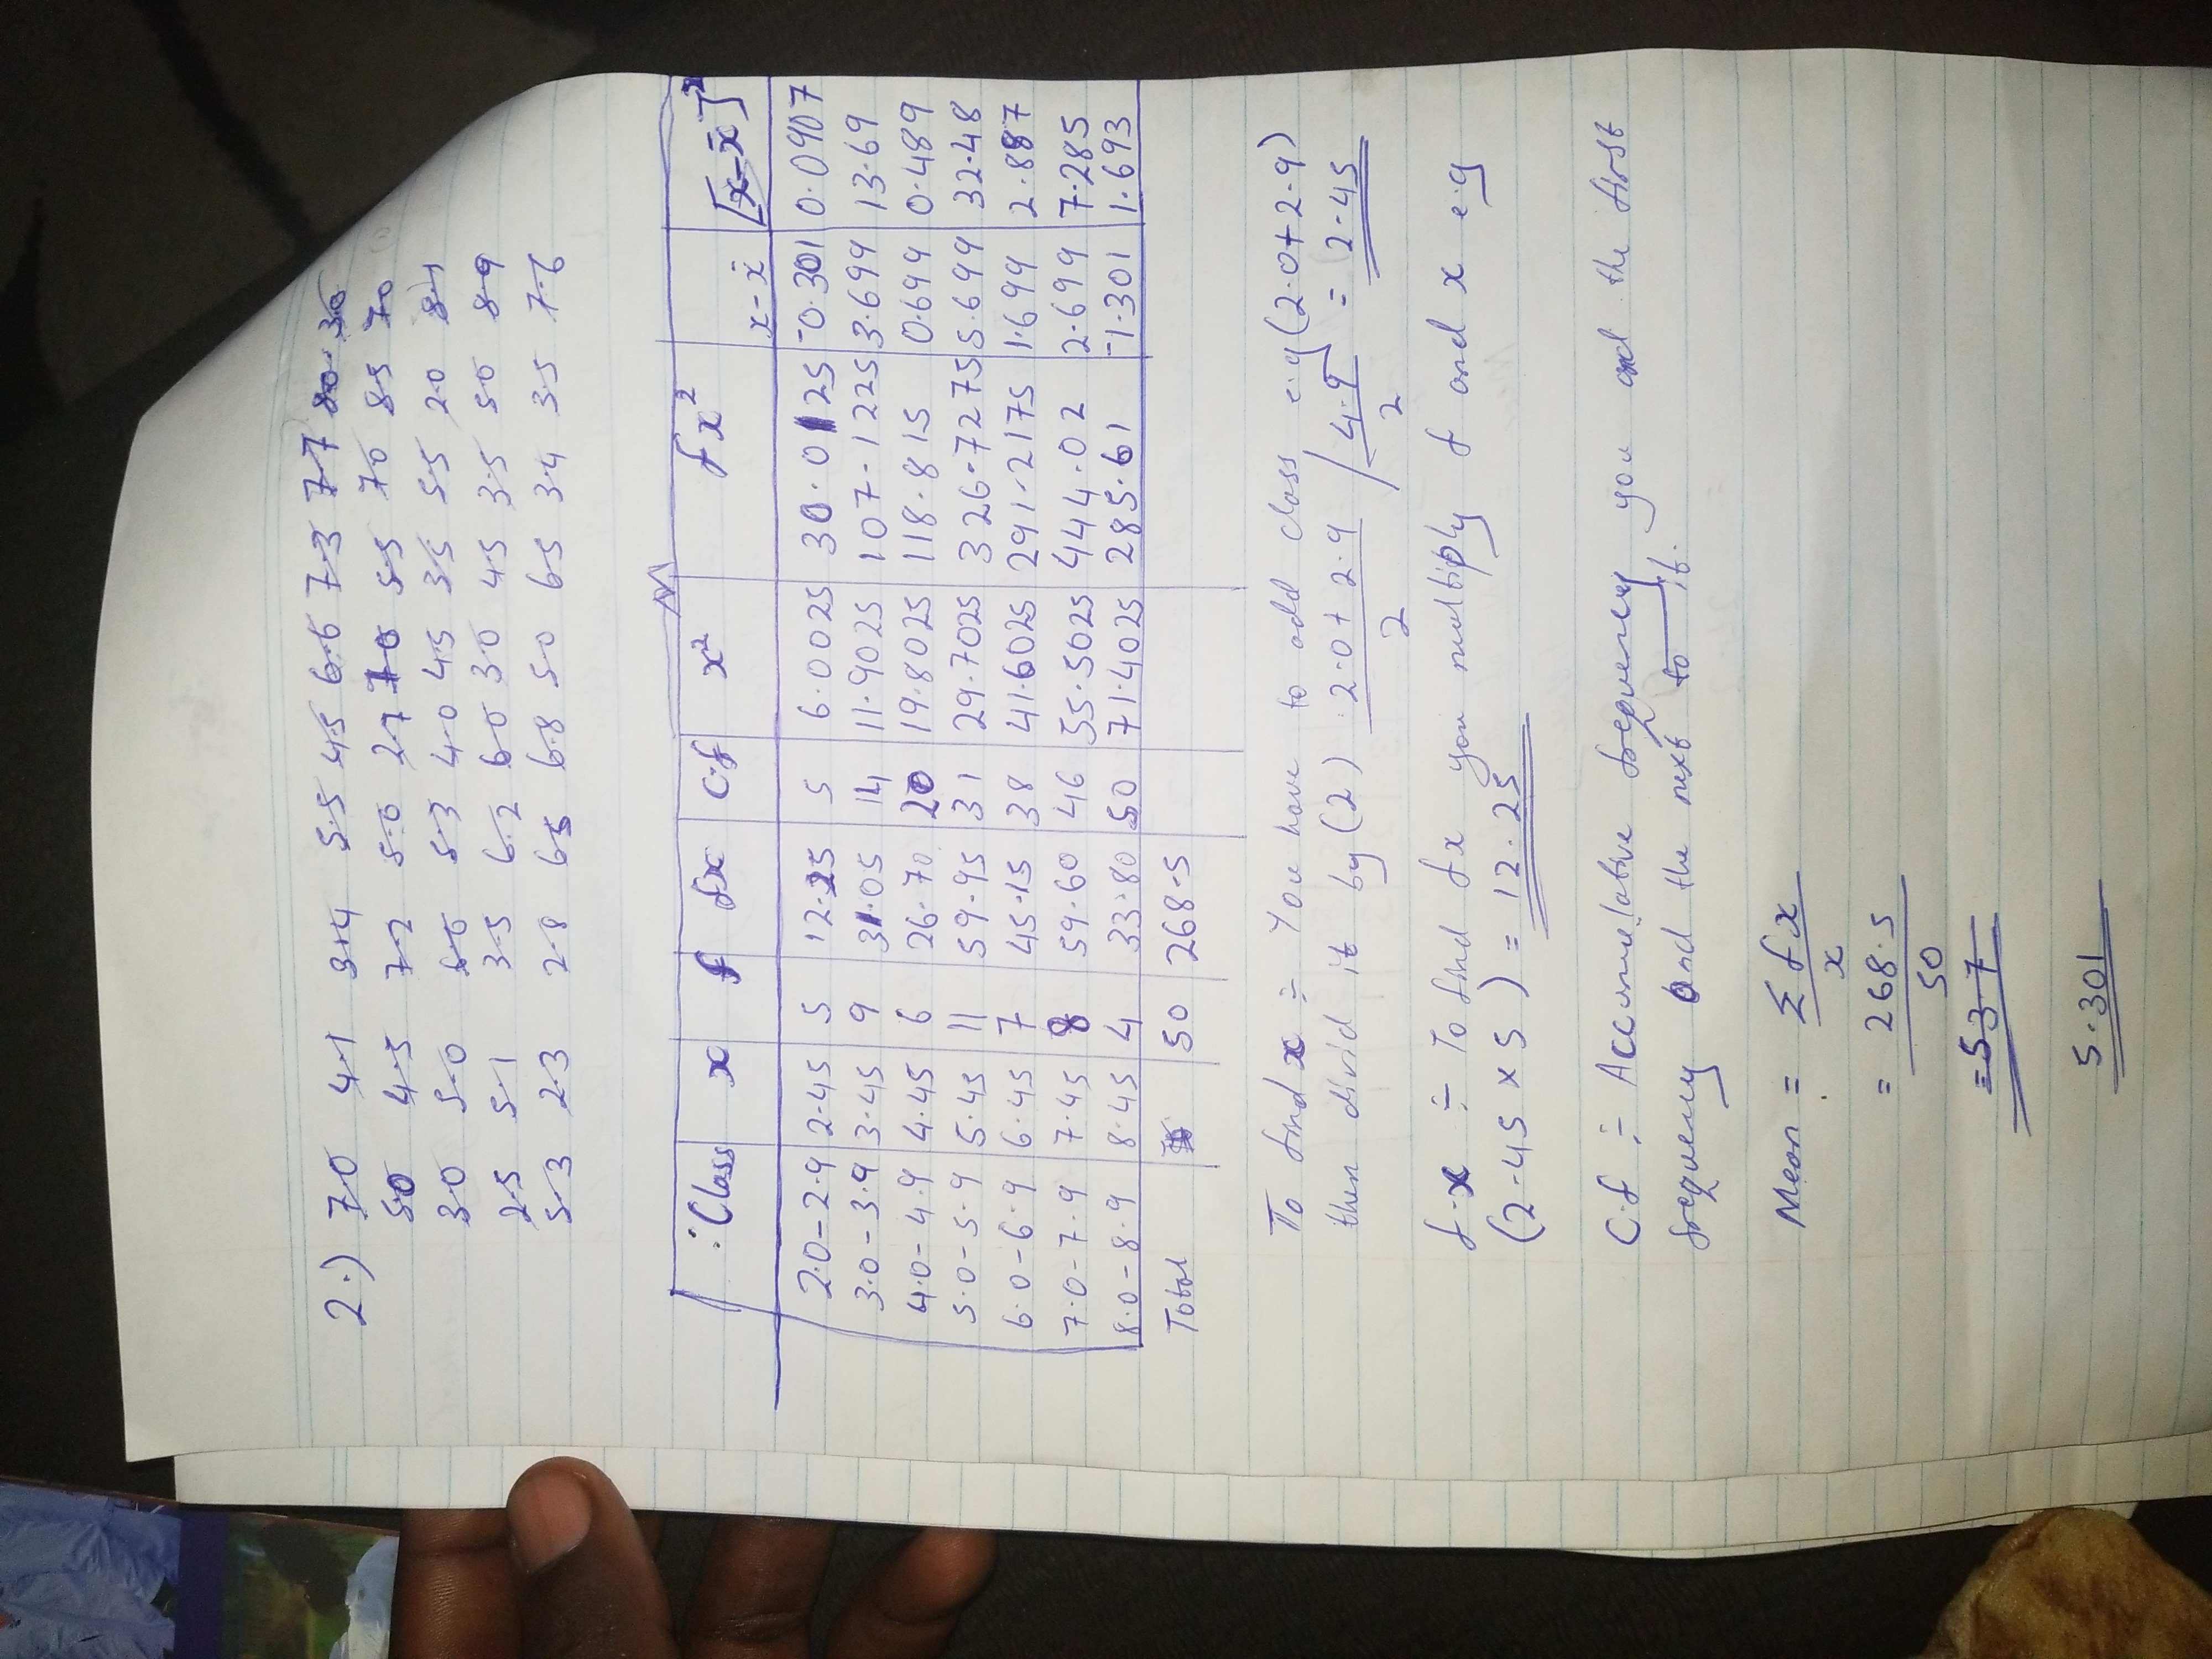 2.) 7.0 4.1 3.4 5.5 4.5 6.6 7.3 7.7 8.0 3.0
5.0 4.5 7.2 5.0 2.7 7.0 5.5 7.0 8.5 7.0
3.0 5.0 6.0 5.3 4.0 4.5 3.5 5.5 2.0 8.1
2.5 5.1 3.5 6.2 6.0 3.0 4.5 3.5 5.0 8.9
5.3 2.3 2.8 6.5 6.8 5.0 6.5 3.4 3.5 7.6
∴ Class x f fx c.f x² fx² x-x̄ [x-x̄]²
2.0-2.9 2.45 5 12.25 5 6.0025 30.0125 -0.301 0.0907
3.0-3.9 3.45 9 31.05 14 11.9025 107.1225 3.699 13.69
4.0-4.9 4.45 6 26.70 20 19.8025 118.815 0.699 0.489
5.0-5.9 5.45 11 59.95 31 29.7025 326.7275 5.699 32.48
6.0-6.9 6.45 7 45.15 38 41.6025 291.2175 1.699 2.887
7.0-7.9 7.45 8 59.60 46 55.5025 444.02 2.699 7.285
8.0-8.9 8.45 4 33.80 50 71.4025 285.61 -1.301 1.693
Total 50 268.5
To find x ÷ You have to add class e.g (2.0+2.9)
then divid it by (2) 2.0+2.9/2 / 4.9/2 = (2.45
f.x ÷ To find fx you multiply f and x e.g
(2.45 x 5) = 12.25
C.f ÷ Accumulative frequency you and the first
frequency and the next to it.
Mean = Σfx/x
= 268.5/50
= 5.37
5.301